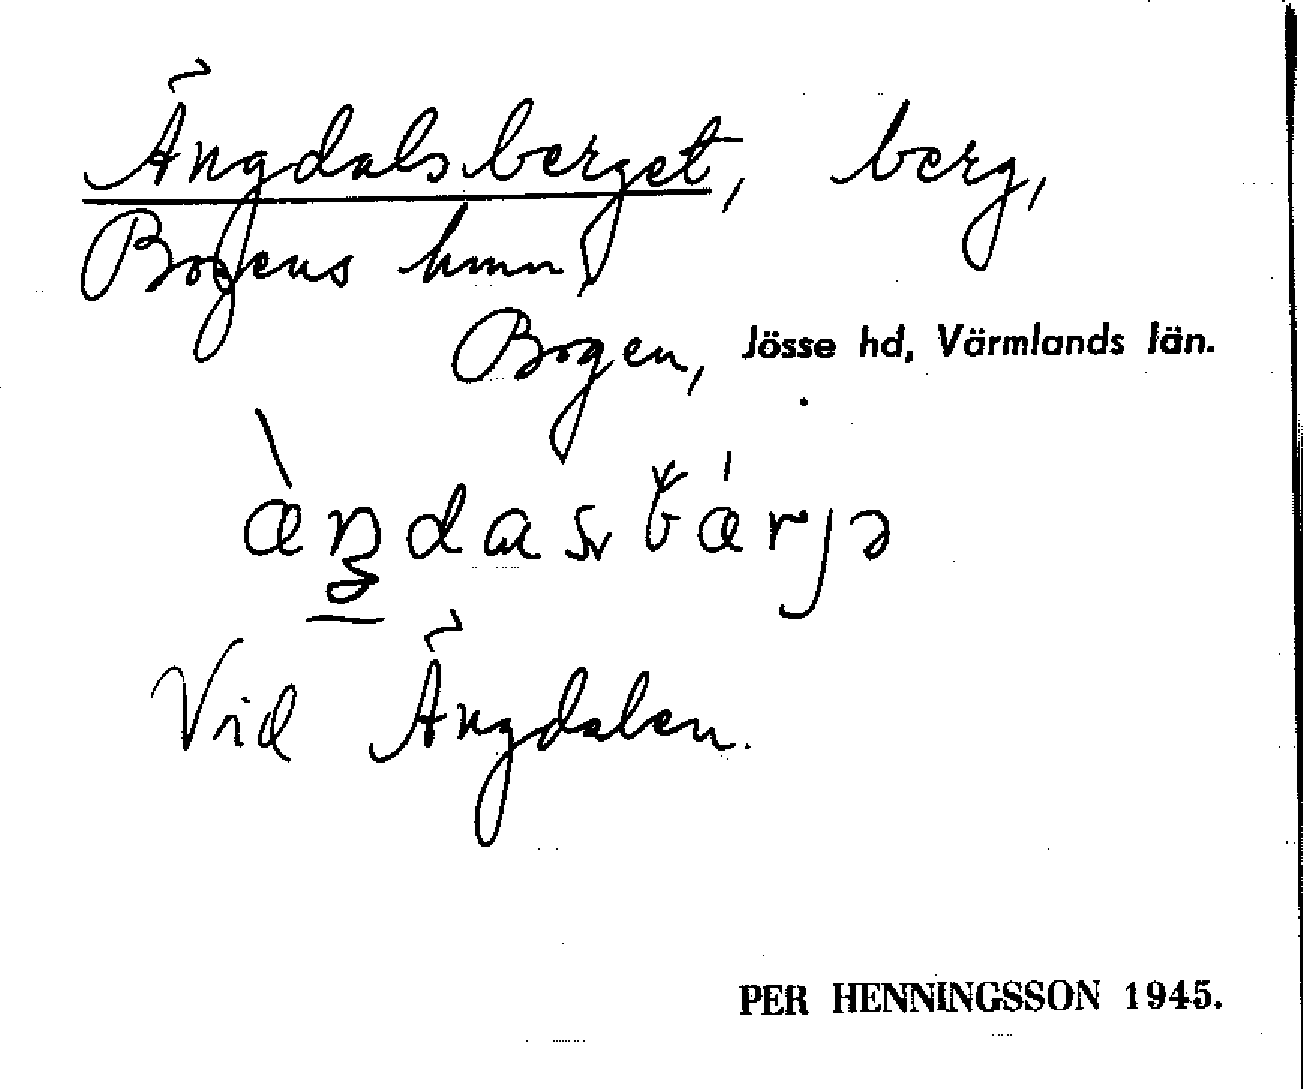 Ängdalsberget, berg,
Bogens hmn
Bogen, Jösse hd, Värmlands län.
Vid Ängdalen.
PER HENNINGSSON 1945.